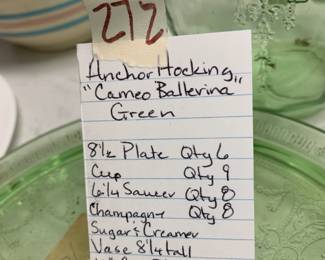 272
Anchor Hocking
"Cameo Ballerina"
Green
8½ Plate Qty 6
Cup Qty 9
6¼ Saucer Qty 8
Champagne Qty 8
Sugar & Creamer
Vase 8¼ tall